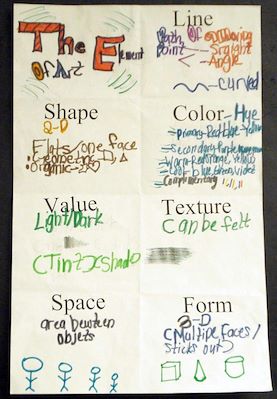 The Element
of Art
Line
Path of
Point
Sraight
Angle
curved
Shape
2-D
Flats/one face
Geometric
Organic
Color-Hye
Primary-Red blue Yellow
Secondary Purple
Warm-Red orange, Yellow
Cool-blue green, violet
Complementary
Value
Light/Dark
(Tint)(Shado
Texture
Can be felt
Space
area bewteen
objets
Form
3-D
(Multiple faces/
sticks out)